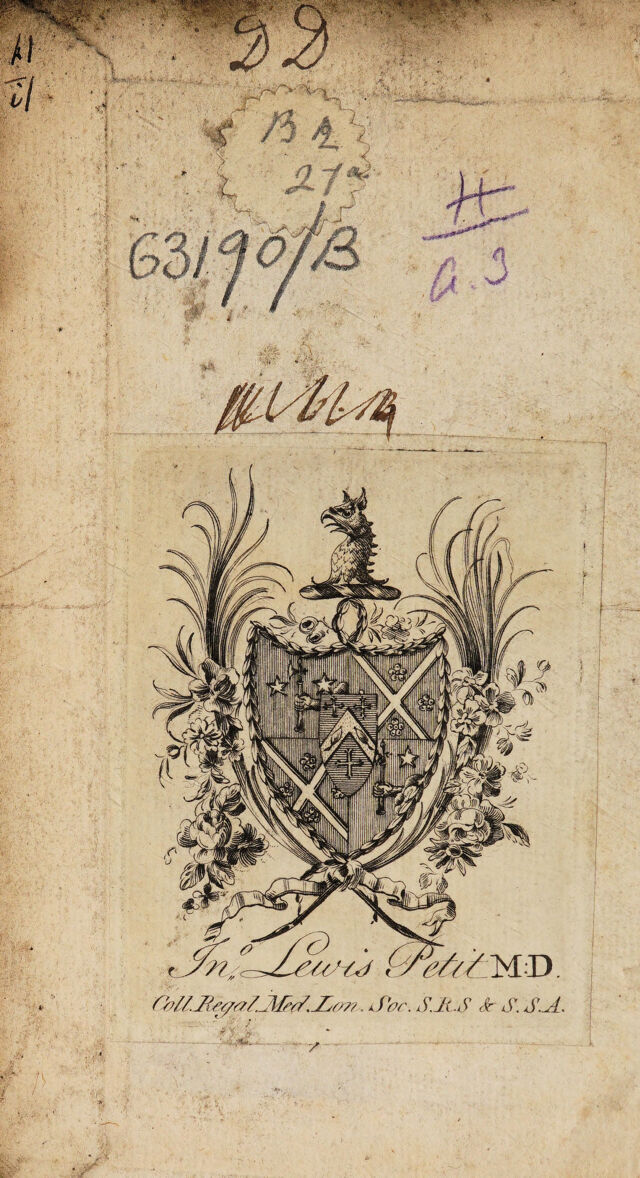 D D
B 2
27a
63190/B
H
a.3
Jno. Lewis Petit M:D.
Coll. Regal. Med. Lon. Soc. S.R.S & S.S.A.